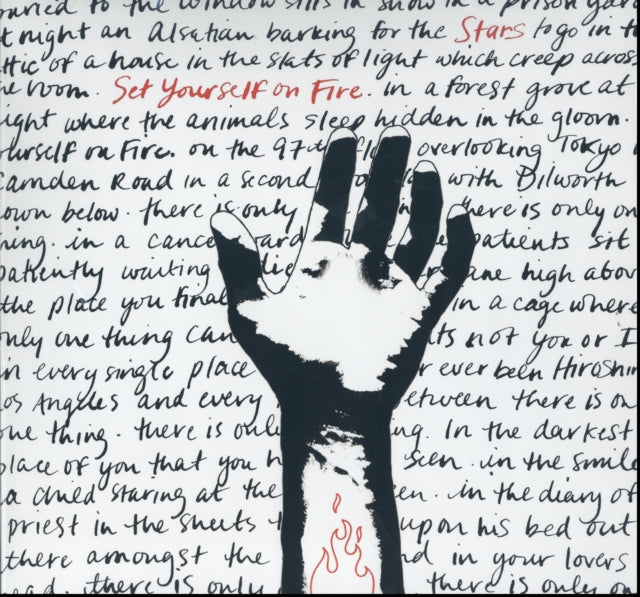 buried to the window sills in snow in a prison yard
at night an Alsatian barking for the Stars to go in
attic of a house in the slats of light which creep across
the room. Set Yourself on Fire. in a forest grove at
night where the animals sleep hidden in the gloom.
yourself on Fire. on the 97th overlooking Tokyo
Camden Road in a second with Dilworth
town below. there is only there is only on
thing. in a cance ward patients sit
patiently waiting high abov
the place you final in a cage where
only one thing can its not you or I
in every single place r ever been Hiroshim
Los Angeles and every between there is on
one thing. there is only ng. In the darkest
place of you that you h seen. in the smile
a child staring at the en. in the diary of
priest in the sheets upon his bed out
there amongst the nd in your lovers
ead. there is only there is only on